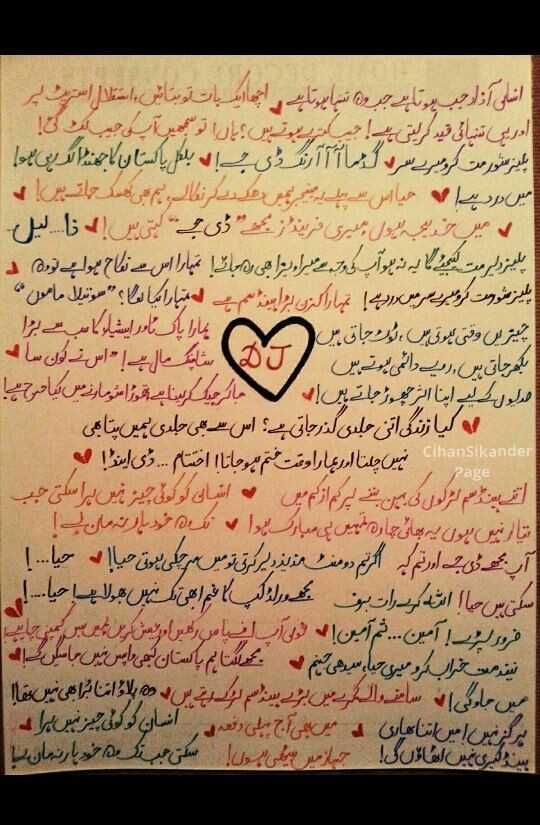 انسان آزاد جب ہوتا ہے جب وہ تنہا ہوتا ہے اچھا ایک بات تو بتائیں، استقلال اسٹریٹ پر
اور یہی تنہائی قید کر لیتی ہے! جیب کترے ہوتے ہیں؟ ہاں! تو سمجھیں آپ کی جیب کٹ گئی!
پلیز شور مت کرو میرے سر گدھا آآآ رنگ ڈی جے! بلکل پاکستان کا جھنڈا لگ رہی ہو!
میں درد ہے! حیا اس سے پہلے یہ منیجر ہمیں دھکے دے کر نکالے، ہم بھی کھسک جاتے ہیں!
میں خدیجہ ہوں میری فرینڈز مجھے "ڈی جے" کہتی ہیں! ذا... لیل۔
پلیز دیر مت کیجئے گا یہ نہ ہو آپ کی وجہ سے میرا ویزا ہی رہ جائے! تمہارا اس سے نکاح ہوا ہے تو وہ
پلیز شور مت کرو میرے سر میں درد ہے! تمہارا کزن بڑا ہینڈسم ہے تمہارا کیا لگا؟ "سوتیلا ماموں"
چیزیں وقتی ہوتی ہیں، ٹوٹ جاتی ہیں ہمارا پاک ٹاور ایشیا کا سب سے بڑا
بکھر جاتی ہیں، رویے دائمی ہوتے ہیں DJ شاپنگ مال ہے! "اس نے کون سا
صدیوں کے لیے اپنا اثر چھوڑ جاتے ہیں! جا کر چیک کر لینا ہے، تھوڑا شو مارنے میں کیا حرج ہے!
کیا زندگی اتنی جلدی گزر جاتی ہے؟ اس سے بھی جلدی ہمیں پتا بھی
نہیں چلتا اور ہمارا وقت ختم ہو جاتا! اختتام ... ڈی اینڈ!
CihanSikander
Page
اتنے ہینڈسم لڑکوں کی بہن بننے پر کم از کم میں انسان کو کوئی چیز نہیں ہرا سکتی جب
تیار نہیں ہوں یہ بھائی چارہ تمہیں ہی مبارک ہو! تک وہ خود ہار نہ مان لے!
آپ مجھے ڈی جے اور تم کہہ اگر تم دو منٹ مزید دیر کرتی تو میں مر چکی ہوتی حیا! حیا...!
سکتی ہیں حیا! اللہ کرے رات ہوئی مجھے ورلڈ کپ کا غم ابھی تک نہیں بھولا ہے! حیا...!
ضرور پڑے! آمین... ثم آمین! فون آپ اپنے پاس رکھیں اور عیش کریں
نیند مت خراب کرو میری حیا، سیدھی جہنم مجھے لگتا ہم پاکستان کبھی واپس نہیں جا سکیں گے!
میں جاؤ گی! سامنے والے کمرے میں بڑے ہینڈسم لڑکے رہتے ہیں وہ پلاؤ اتنا برا بھی نہیں تھا!
ہرگز نہیں! میں اتنا بھاری میں بھی آج پہلی دفعہ انسان کو کوئی چیز نہیں ہرا
ہینڈ کیری نہیں اٹھاؤں گی! جہاز میں بیٹھی ہوں! سکتی جب تک وہ خود ہار نہ مان لے!